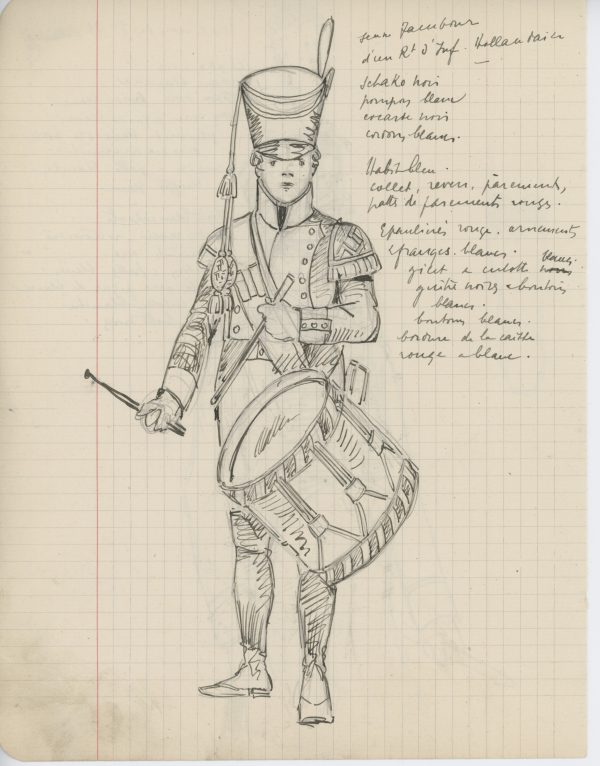 jeune Tambour
d'un Rt d'Inf. Hollandaise
schako noir
pompon blanc
cocarde noire
cordons blancs.
Habit bleu.
collet, revers, parements,
patte de parements rouges.
Epaulières rouge. ornements
franges. blancs.
gilet culotte blancs
guêtre noires boutons
blancs.
boutons blancs.
bordure de la caisse
rouge blanc.